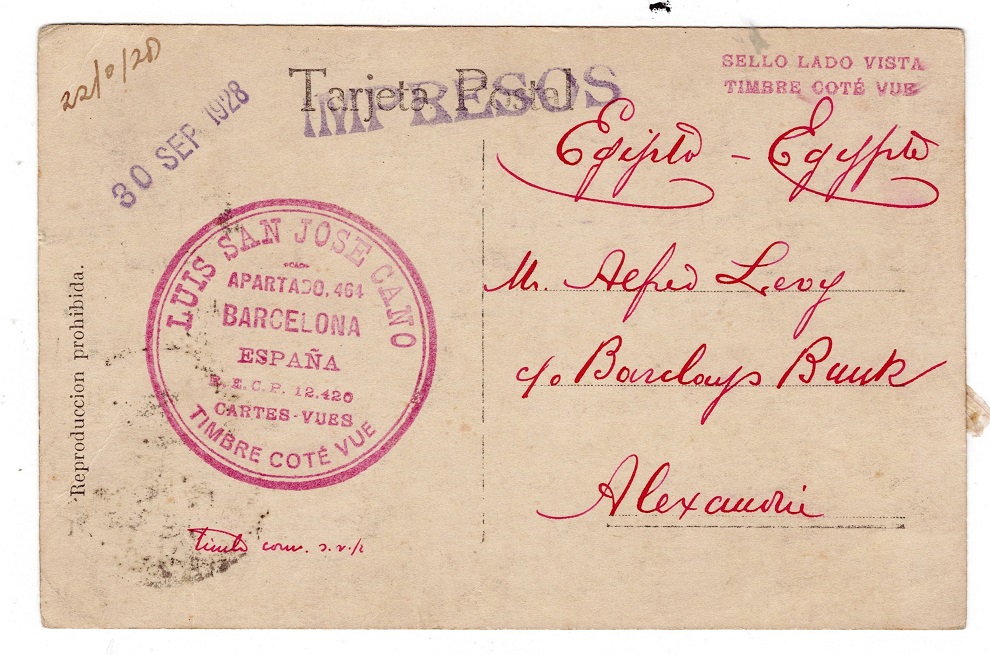 22/0/28
30 SEP 1928
Tarjeta Postal
IMPRESOS
SELLO LADO VISTA
TIMBRE COTÉ VUE
Egipto - Egypte
Mr. Alfred Levy
c/o Barclays Bank
Alexandrie
LUIS SAN JOSE CANO
APARTADO, 464
BARCELONA
ESPAÑA
E.C.P. 12.420
CARTES-VUES
TIMBRE COTÉ VUE
Reproduccion prohibida.
s.v.p.